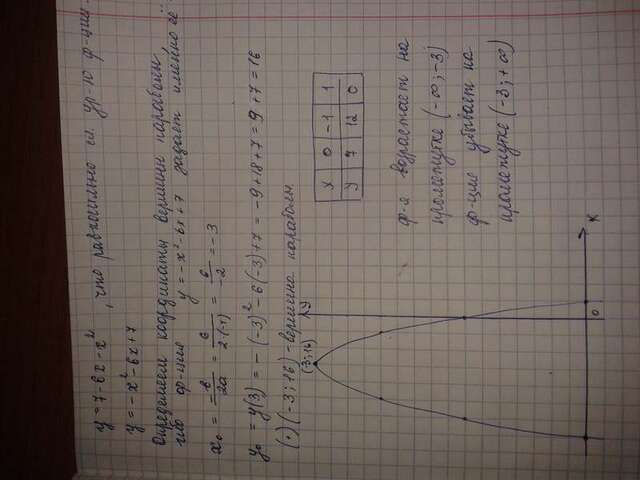 y = 7 - 6x - x² , что равносильно ур-ю ф-ции
y = -x² - 6x + 7
Определяем координаты вершины параболы,
ф-ция y = -x² - 6x + 7 задаёт именно её
x₀ = -b/2a = 6/2·(-1) = 6/-2 = -3
y₀ = y(3) = -(-3)² - 6(-3) + 7 = -9 + 18 + 7 = 9 + 7 = 16
(·) (-3; 16) - вершина параболы
x 0 -1 1
y 7 12 0
(3; 16)
y
ф-я возрастает на
промежутке (-∞; -3)
ф-ция убывает на
промежутке (-3; +∞)
0
x